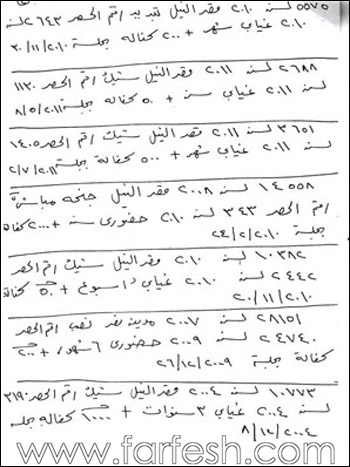 ٥٥٧٥ لسنة ٢٠١٠ مقر النيل تبديد رقم الحصر ٢٦٤٣ لسنة
٢٠١٠ غيابي شهر + ٢٠٠ كفالة جلسة ٢٠١٠/١١/٣٠
٢٦٨٨ لسنة ٢٠١١ مقر النيل شيك رقم الحصر ١١٢٠
لسنة ٢٠١١ غيابي سنة + ٥٠ كفالة جلسة ٢٠١١/٥/٨
٣٦٥١ لسنة ٢٠١١ مقر النيل شيك رقم الحصر ١٤٠٥
لسنة ٢٠١١ غيابي شهر + ٥٠٠ كفالة جلسة ٢٠١١/٧/٢
١٤٥٥٨ لسنة ٢٠٠٨ مقر النيل جنحه مباشرة
رقم الحصر ٣٤٣ لسنة ٢٠١٠ حضوري سنة + ٢٠٠٠ كفالة
جلسة ٢٠١٠/٢/٢٤
١٠٣٨٢ لسنة ٢٠١٠ مقر النيل شيك رقم الحصر
٢٤٤٢ لسنة ٢٠١٠ غيابي اسبوع + ٥٠ كفالة
٢٠١٠/١١/٢٠
٢٨١٥١ لسنة ٢٠٠٧ مدينة نصر نصب رقم الحصر
٢٤٧٤٠ لسنة ٢٠٠٩ حضوري ٦ شهور + ٢٠٠
كفالة جلسة ٢٠٠٩/١٢/٢٦
١٠٧٧٣ لسنة ٢٠٠٤ مقر النيل شيك رقم الحصر ٣١٩٠
لسنة ٢٠٠٤ غيابي ٣ سنوات + ١٠٠٠ كفالة جلسة
٢٠٠٤/١٢/٨
www.farfesh.com